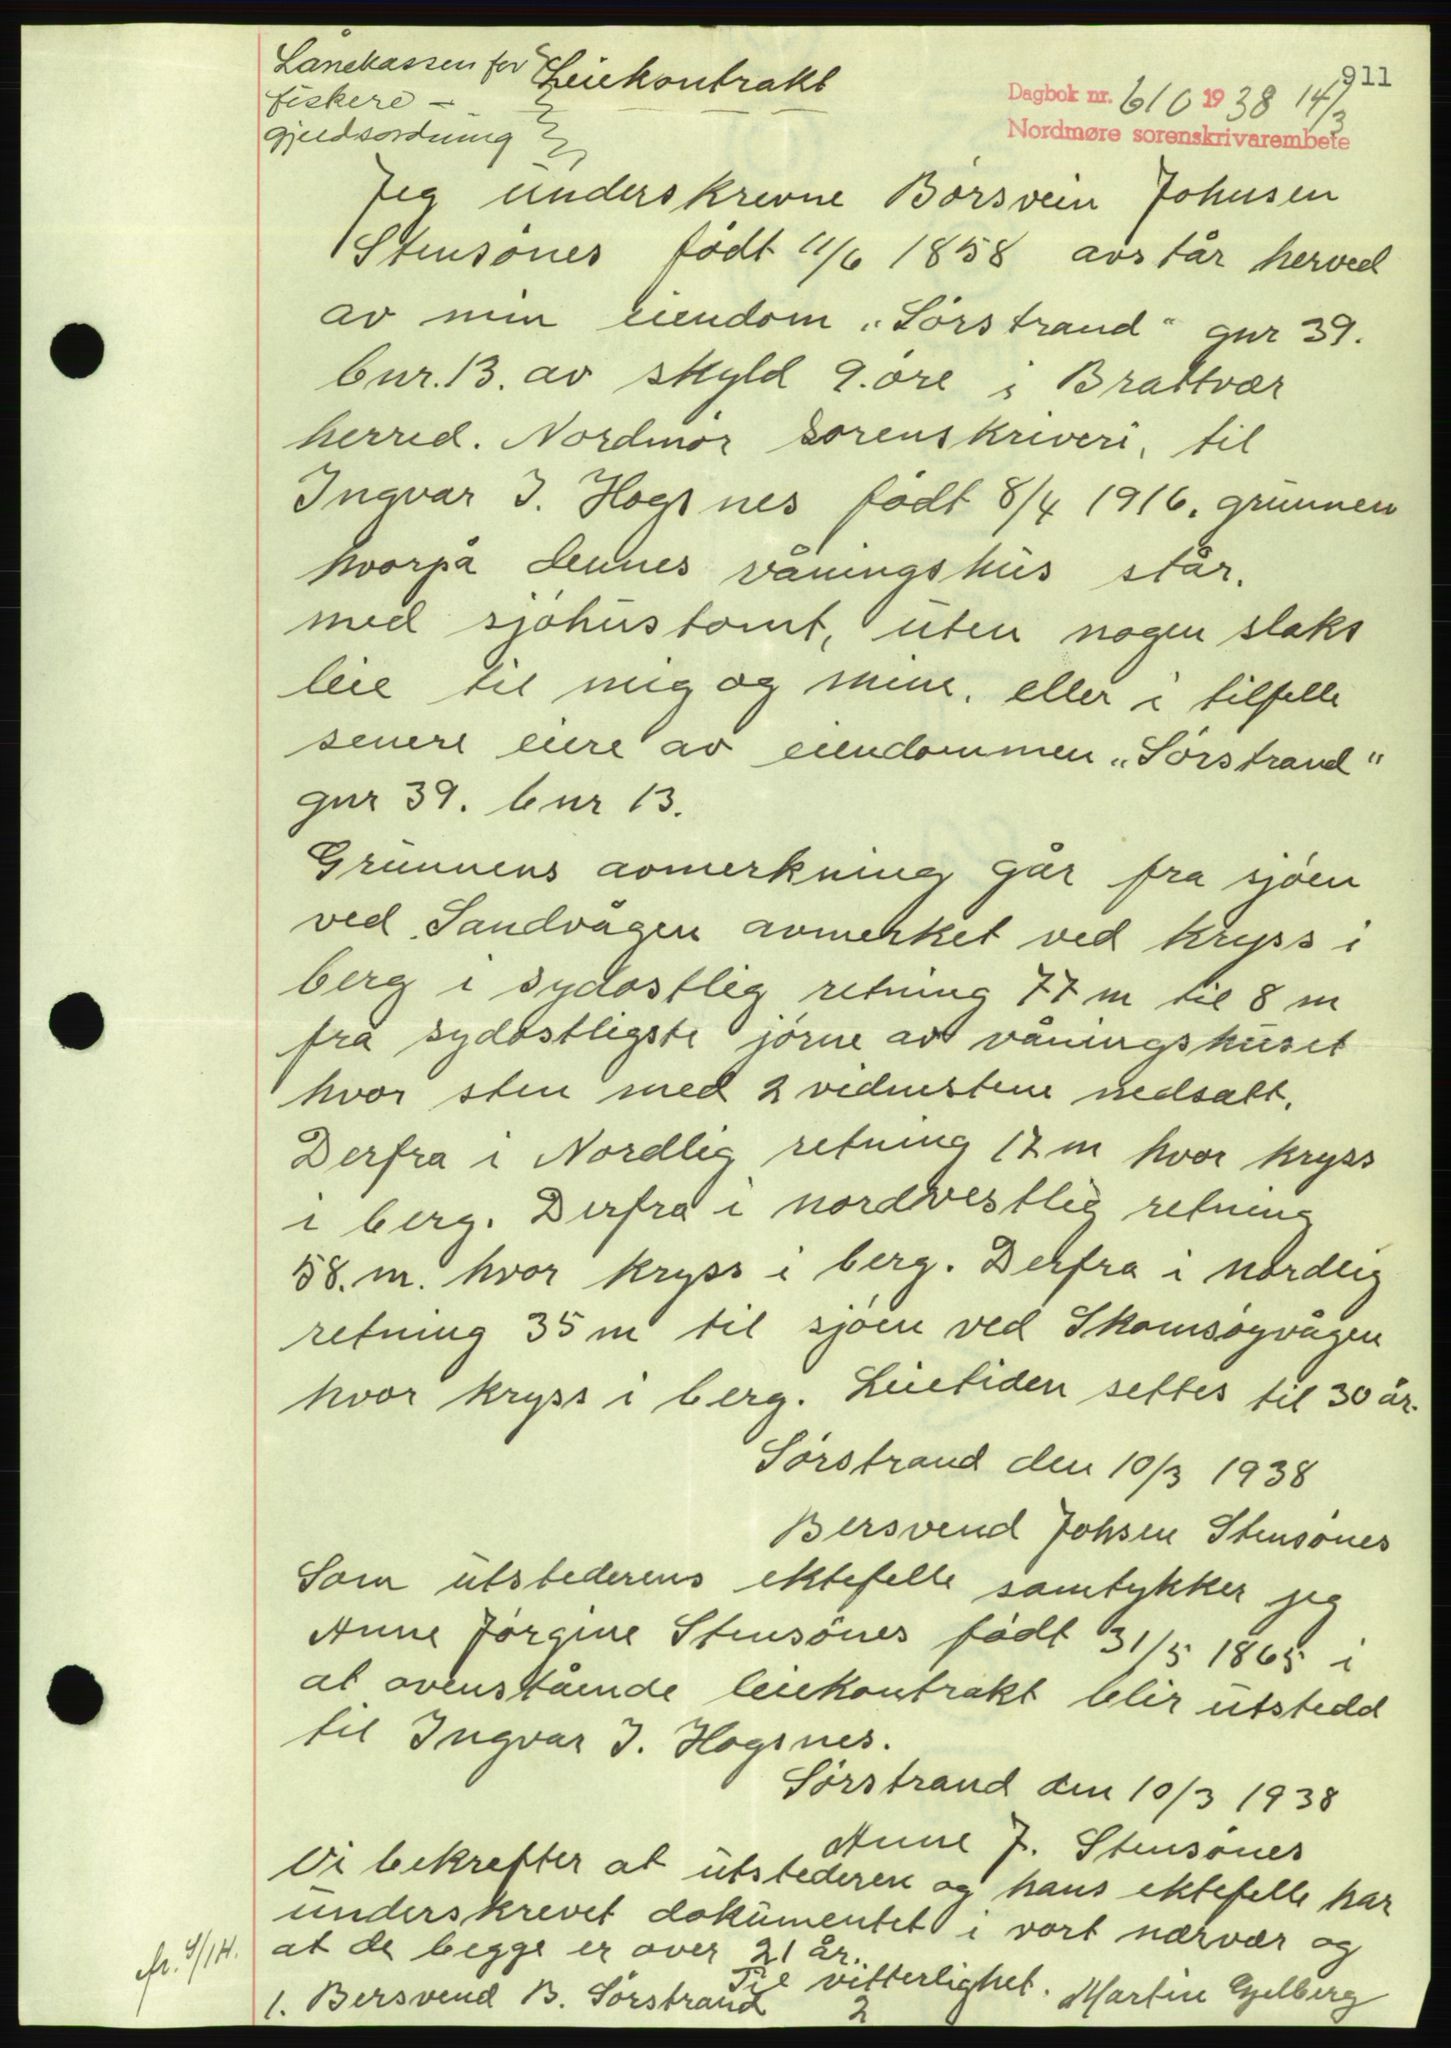 Lånekassen for
fiskere –
gjeldsordning
Leiekontrakt
911
Dagbok nr. 610 1938 14/3
Nordmøre sorenskrivarembete
Jeg underskrevne Börsvein Johnsen
Stensönes födt 11/6 1858 avstår herved
av min eiendom „Sörstrand“ gnr 39.
bnr. 13. av skyld 9. öre i Brattvær
herred. Nordmör Sorenskriveri, til
Ingvar J. Hogsnes födt 8/4 1916. grunnen
hvorpå dennes våningshus står.
med sjöhustomt, uten nogen slaks
leie til mig og mine. eller i tilfelle
senere eiere av eiendommen „Sörstrand“
gnr 39. bnr 13.
Grunnens avmerkning går fra sjöen
ved Sandvågen avmerket ved kryss i
berg i sydöstlig retning 77 m til 8 m
fra sydöstligste jörne av våningshuset
hvor sten med 2 vidnestene nedsatt.
Derfra i Nordlig retning 17 m hvor kryss
i berg. Derfra i nordvestlig retning
58. m. hvor kryss i berg. Derfra i nordlig
retning 35 m til sjöen ved Skomsögvågen
hvor kryss i berg. Leietiden settes til 30 år.
Sörstrand den 10/3 1938
Bersvend Johsen Stensönes
Som utstederens ektefelle samtykker jeg
Anne Jörgine Stensönes födt 31/5 1865 i
at ovenstående leiekontrakt blir utstedd
til Ingvar J. Hogsnes.
Sörstrand den 10/3 1938
Anne J. Stensönes
Vi bekrefter at utstederen og hans ektefelle har
underskrevet dokumentet i vort nærvær og
at de begge er over 21 år.
Til vitterlighet.
1. Bersvend B. Sörstrand 2 Martin Gjelberg